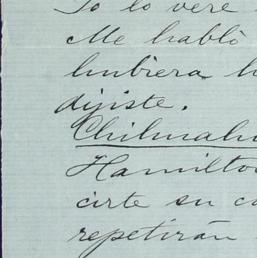 Yo lo veré
Me habló
hubiera h
dijiste.
Chihuahu
Hamilton
cirte su c
repetirán